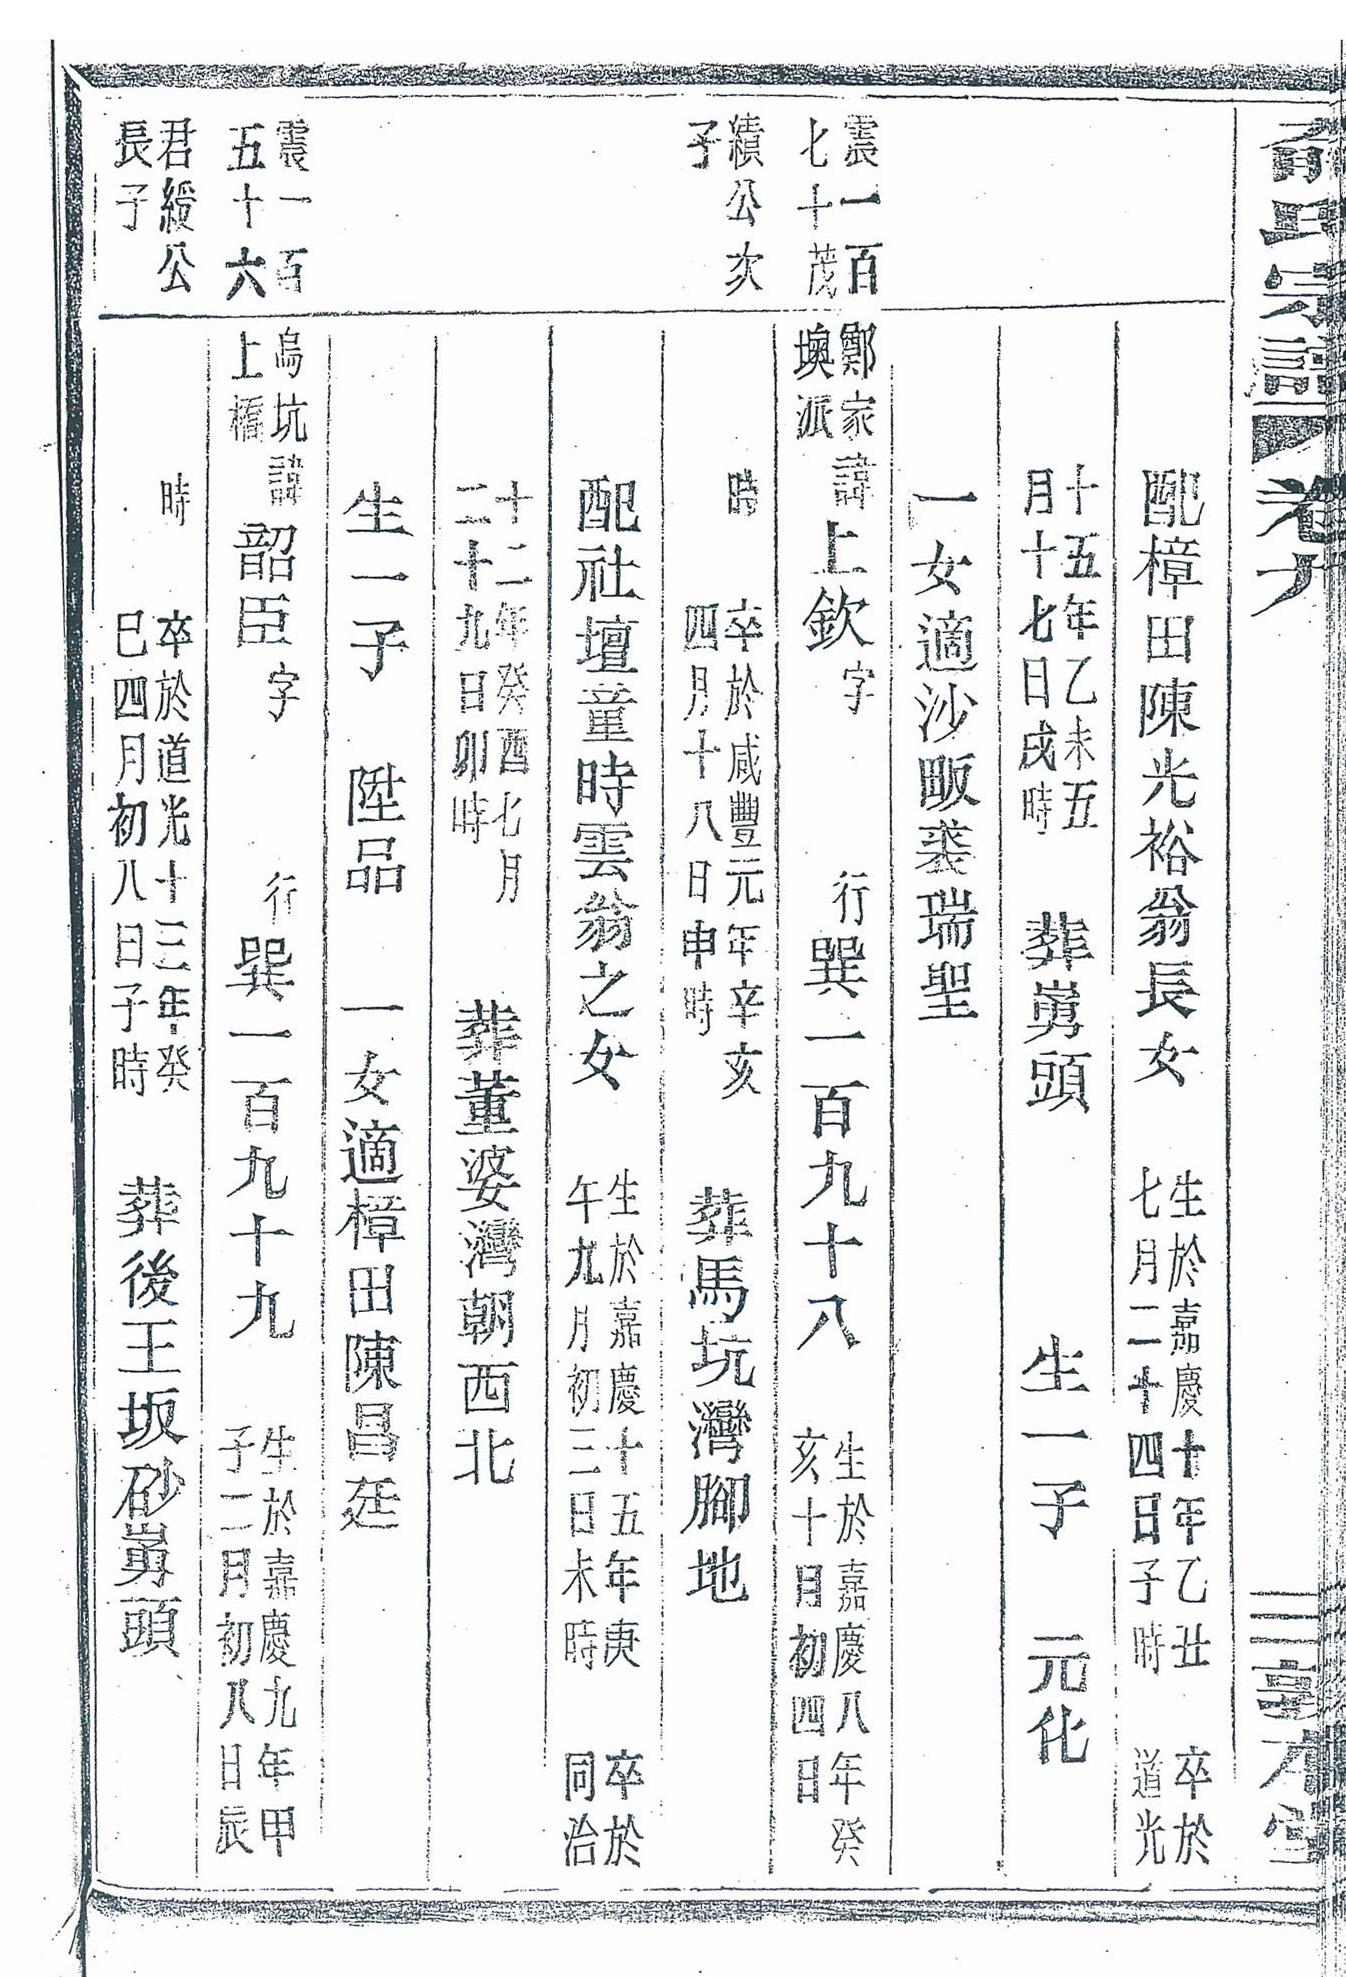 俞氏宗譜 卷九 三 敦本堂
配樟田陳光裕翁長女 生於嘉慶十年乙丑七月二十四日子時 卒於道光
十五年乙未五月十七日戌時 葬嵩頭 生一子 元化
一女適沙畈裘瑞聖
震一百七十茂 鄭家㙪派 諱上欽字 行巽一百九十八 生於嘉慶八年癸亥十月初四日
績公次子 時 卒於咸豐元年辛亥四月十八日申時 葬馬坑灣腳地
配社壇童時雲翁之女 生於嘉慶十五年庚午九月初三日未時 卒於同治
十二年癸酉七月二十九日卯時 葬董婆灣朝西北
生一子 陞品 一女適樟田陳昌廷
震一百五十六 烏坑上樯 諱韶臣字 行巽一百九十九 生於嘉慶九年甲子二月初八日辰
君緩公長子 時 卒於道光十三年癸巳四月初八日子時 葬後王坂砂嵩頭